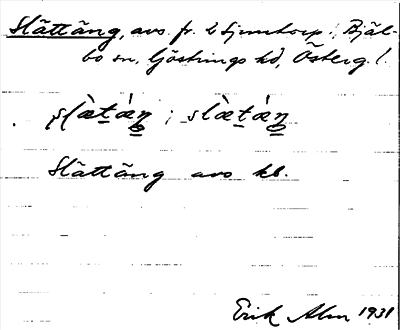 Slättäng, avs. fr. Sjuntorp i Bjäl-
bo sn, Göstrings hd, Österg. l.
slæ̀tǽŋ ; slæ̀tǽŋ
Slättäng avs kb.
Erik Alm 1931